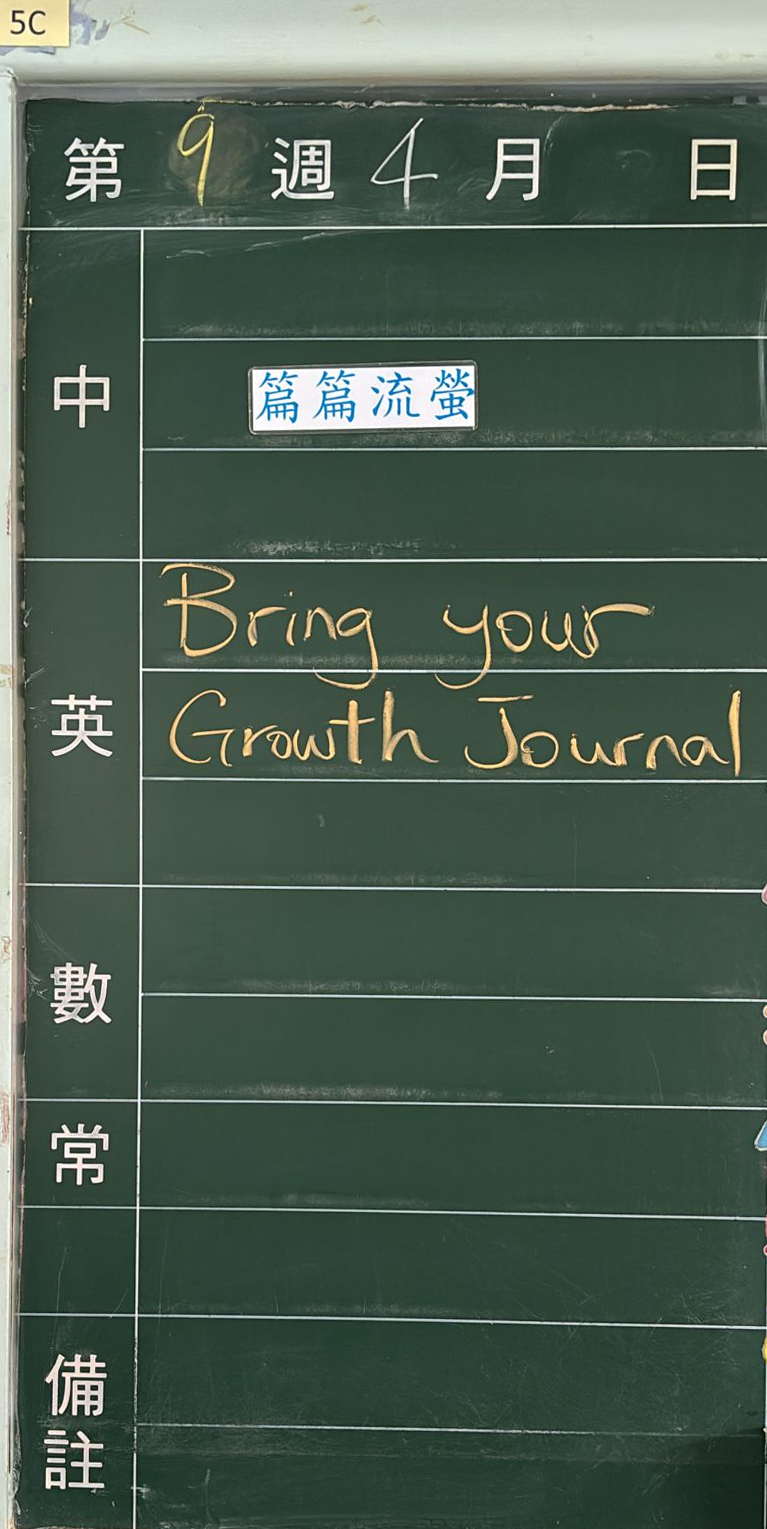 5C
第 9 週 4 月 日
中
篇篇流螢
英
Bring your
Growth Journal
數
常
備
註